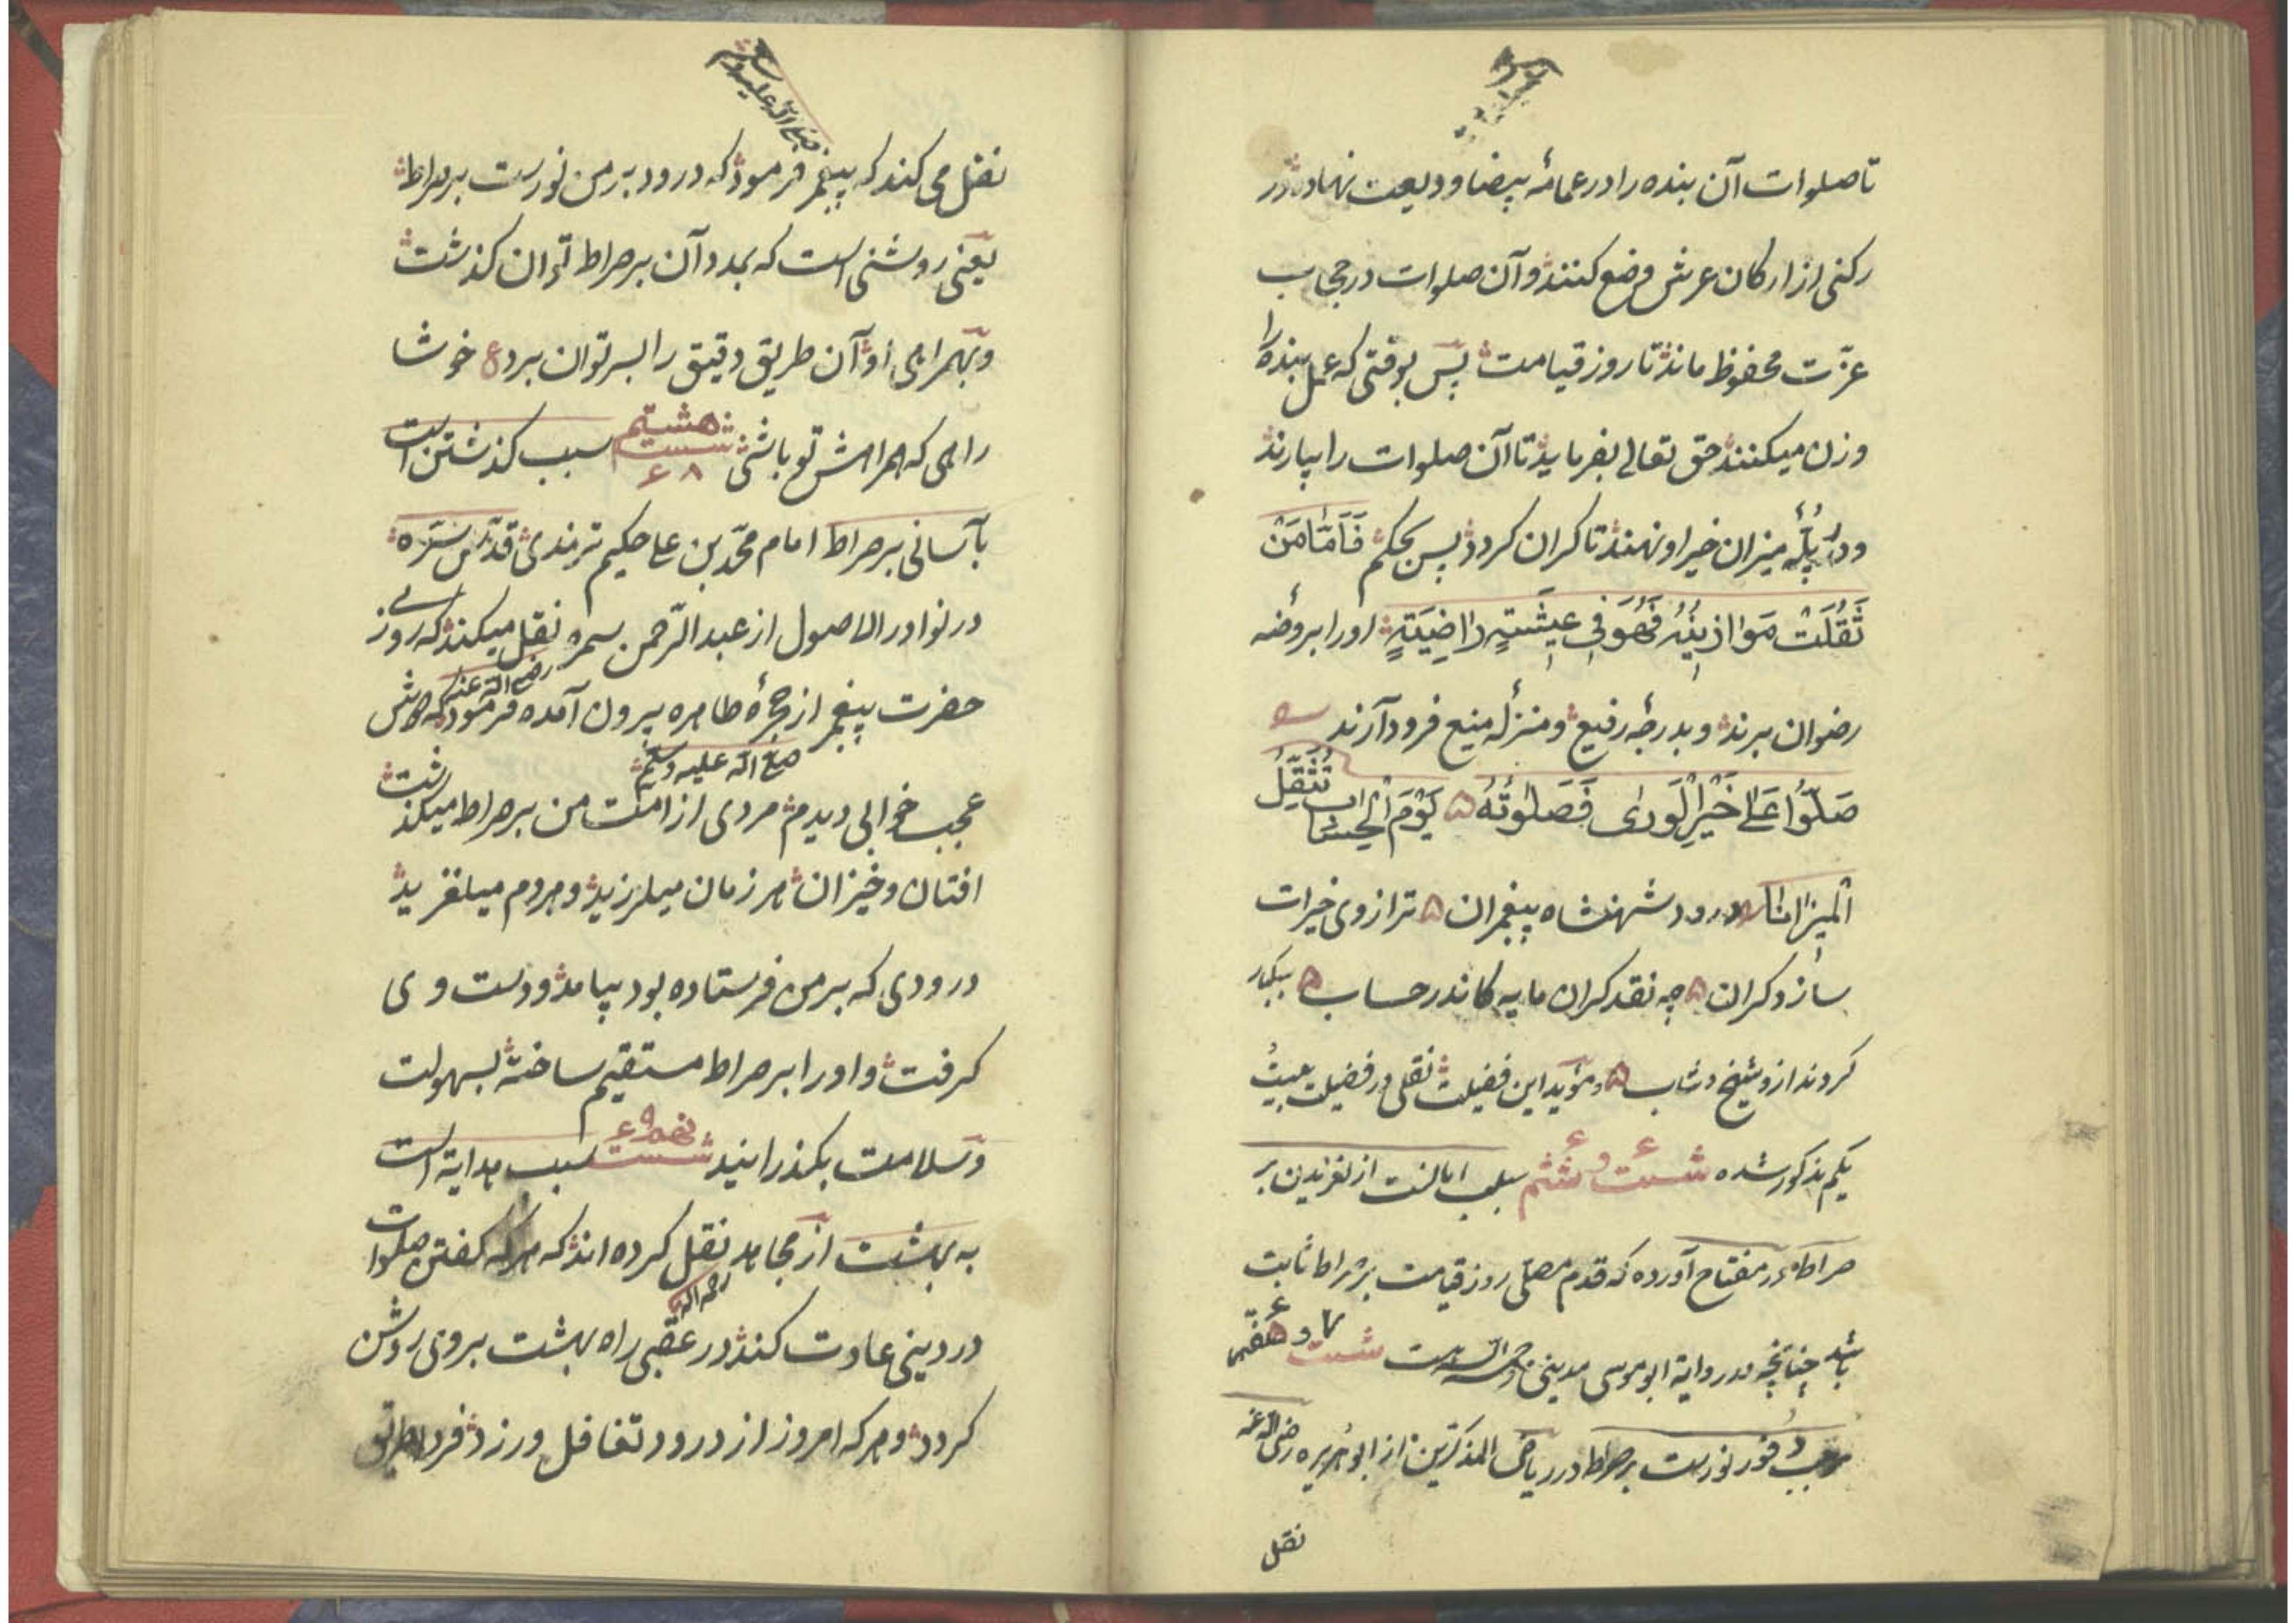 تا صلوات آن بنده را در عمامهٔ بیضا ودیعت نهاده در
رکنی از ارکان عرش وضع کنند و آن صلوات در حجاب
عزّت محفوظ ماند تا روز قیامت پس بوقتی که عمل بنده را
وزن میکنند حق تعالی بفرماید تا آن صلوات را بیارند
و در پلّهٔ میزان خیر او نهند تا کران کردد پس بحکم فَاَمَّا مَنْ
ثَقُلَتْ مَوَازِینُهُ فَهُوَ فِی عِیشَتِهٍ رَاضِیَتِهٍ او را بروضهٔ
رضوان برند و بدرجهٔ رفیع و منزلهٔ منیع فرود آرند
صَلّوُا عَلیٰ خَیْرِ الْوَریٰ فَصَلٰوتُهُ ۵ یَوْمَ الْحِسَابِ تُثَقِّلُ
الْمِیْزَانَا درود شهنشاه پیغمبران ۵ ترازوی خیرات
سازد کران ۵ چه نقد کران مایه کاندر حساب ۵ سبکبار
کردند ازو شیخ و شاب ۵ و مؤید این فضیلت نقلی در فضیلت بیست
یکم مذکور شده شست و ششم سبب ایمانست از لغزیدن بر
صراط در مفتاح آورده که قدم مصلّی روز قیامت بر صراط ثابت
باشد چنانچه در روایة ابوموسی مدینی رحمه الله است شست و هفتم ۷
موجب وفور نورست بر صراط در ریاض المذکّرین از ابوهریره رضی الله عنه
نقل
صلی الله علیه وسلم
نقل می کند که پیغمبر فرمود که درود بر من نورست بر صراط
یعنی روشنی است که بمدد آن بر صراط توان کذشت
و بهمراهی او آن طریق دقیق را بسر توان برد ع خوشا
راهی که همراهش تو باشی شست هشتم ۶۸ سبب کذشتن است
بآسانی بر صراط امام محمّد بن علی حکیم ترمذی قدّس سرّه
در نوادر الاصول از عبد الرّحمن سمره نقل میکند که روزی
رضی الله عنه
حضرت پیغمبر از حجرهٔ طاهره بیرون آمده فرمود که دوش
صلی الله علیه وسلم
عجب خوابی دیدم مردی از امّت من بر صراط میکذشت
افتان و خیزان هر زمان میلرزید و هر دم میلغزید
درودی که بر من فرستاده بود بیامد و دست وی
کرفت و او را بر صراط مستقیم ساخته بسهولت
و سلامت بکذرانید شست نهم ۶۹ سبب هدایة است
به بهشت از مجاهد نقل کرده اند که هر که کفتن صلوات
رحمه الله
در دینی عادت کند در عقبی راه بهشت بر وی روشن
کردد و هر که امروز از درود تغافل ورزد فردا طریق